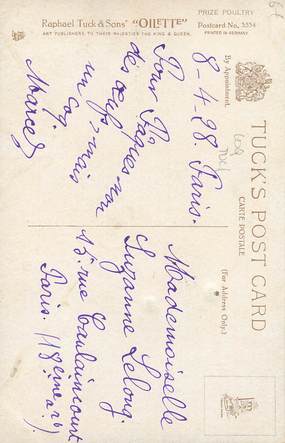 Raphael Tuck & Sons' "OILETTE"
ART PUBLISHERS TO THEIR MAJESTIES THE KING & QUEEN.
PRIZE POULTRY
Postcard No. 3554
PRINTED IN GERMANY
By Appointment.
TUCK'S POST CARD
CARTE POSTALE
(For Address Only.)
8-4-28. Paris.
Pour Pâques-non
des œufs, mais
un coq.
Marcel
Mademoiselle
Suzanne Lelong.
15 rue Caulaincourt
Paris. (18ème arr)